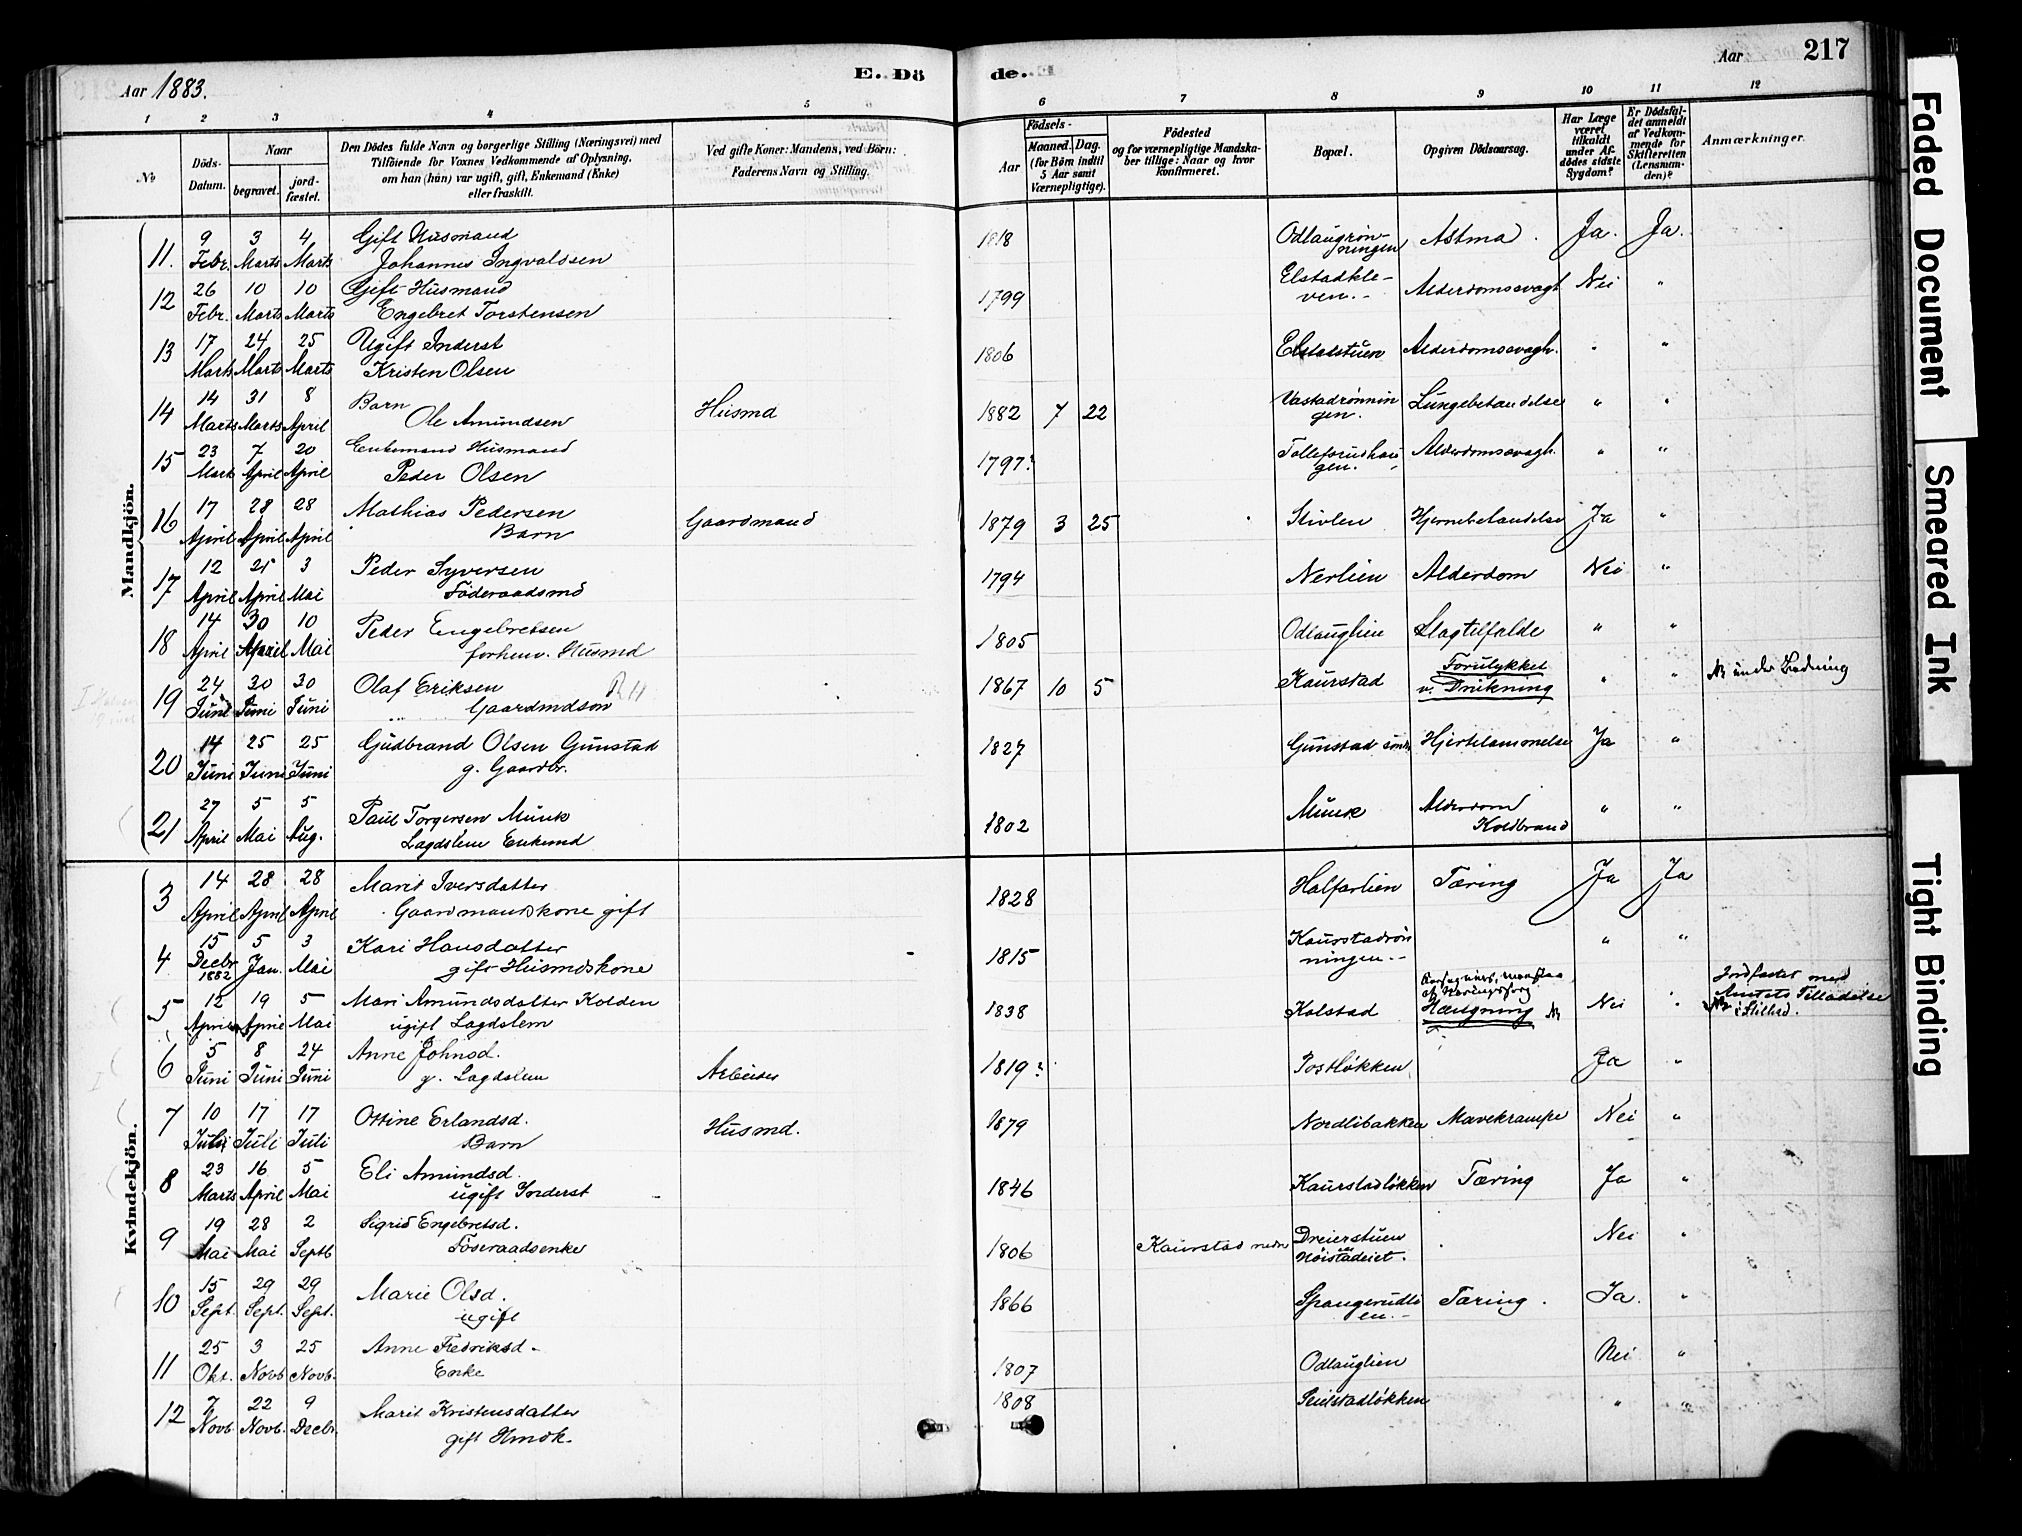 Aar 1883.
E. Dö
de.
Aar
217
1 2 3 4 5 6 7 8 9 10 11 12
No
Döds-Datum.
Naar
begravet.
jord-fæstet.
Den Dödes fulde Navn og borgerlige Stilling (Næringsvei) med
Tilföiende for Voxnes Vedkommende af Oplysning,
om han (hun) var ugift, gift, Enkemand (Enke)
eller fraskilt.
Ved gifte Koner: Mandens, ved Börn:
Faderens Navn og Stilling.
Födsels-
Aar
Maaned. Dag.
(for Börn indtil
5 Aar samt
Værnepligtige).
Födested
og for værnepligtige Mandska-
ber tillige: Naar og hvor
konfirmeret.
Bopæl.
Opgiven Dödsaarsag.
Har Læge
været
tilkaldt
under Af-
dödes sidste
Sygdom?
Er Dödsfal-
det anmeldt
af Vedkom-
mende for
Skifteretten
(Lensman-
den)?
Anmærkninger.
Mandkjön.
9 3 4 Gift Husmand 1818 Odlaugrön-
11. Febr. Marts Marts Johannes Ingvaldsen ningen Astma. Ja. Ja.
26 10 10 Gift Husmand Elstadkle-
12 Febr. Marts Marts Engebret Torstensen 1799 ven. Alderdomssvagh Nei "
17 24 25 Ugift Inderst
13 Marts Marts Marts Kristen Olsen 1806 Elstadstuen Alderdomssvagh. " "
14 31 8 Barn
14 Marts Marts April Ole Amundsen Husmd 1882 7 22 Vastadrønnin
gen. Lungebetændelse " "
23 7 20 Enkemand Husmand
15 Marts April April Peder Olsen 1797? Tollefsrudhau
gen. Alderdomssvagh. " "
17 28 28 Mathias Pedersen
16 April April April Barn Gaardmand 1879 3 25 Stivlen Hjernebetændelse Ja "
12 25 3 Peder Syversen
17 April April Mai Föderaadsmd 1794 Nerlien Alderdom Nei "
14 30 10 Peder Engebretsen
18 April April Mai forhenv. Husmd 1805 Odlauglien Slagtilfælde " "
24 30 30 Olaf Eriksen
19 Juni Juni Juni Gaardmdsøn 1867 10 5 Kaurstad Forulykket
v. Drukning " " N under Badning
14 25 25 Gudbrand Olsen Gunstad
20 Juni Juni Juni g. Gaardbr. 1827 Gunstad Hjertelammelse Ja "
27 5 5 Paul Torgersen Munk
21 April Mai Aug. Lagdslem Enkemd 1802 Munk Alderdom
Koldbrand " "
Kvindekjön.
14 28 28 Marit Iversdatter
3 April April April Gaardmandskone gift 1828 Halfarlien Tæring Ja Ja
15 5 3 Kari Hansdatter
4 Decbr 1882 Jan. Mai gift Husmdskone 1815 Kaurstadrön
ningen. " "
12 19 5 Mari Amundsdatter Kolden
5 April April Mai ugift Lagdslem 1838 Kolstad
af Næringssorg
Hængning N Nei " Jordfæstet med
Amtets Tilladelse
i Stilhed.
5 8 24 Anne Johnsd.
6 Juni Juni Juni g. Lagdslem Arbeider 1819? Postløkken Ja "
10 17 17 Ottine Erlandsd.
7 Juli Juli Juli Barn Husmd. 1879 Nordlibakken Mavekrampe Nei "
23 16 5 Eli Amundsd.
8 Marts April Mai ugift Inderst 1846 Kaurstadløkken Tæring Ja "
19 28 2 Sigrid Engebretsd.
9 Mai Mai Septb Föderaadsenke 1806 Kaurstad nedre Dreierstuen
Höistadeiet. Nei "
15 29 29 Marie Olsd.
10 Sept. Sept. Sept. ugift 1866 Spangrudli
en. Tæring. Ja. "
25 3 25 Anne Fredriksd.
11 Okt. Novb Novb. Enke 1807 Odlauglien Nei "
7 22 9 Marit Kristensdatter 1808 Seielstadløkken
12 Novb. Novb. Decbr. gift Hmdk. " "
Faded Document
Smeared Ink
Tight Binding